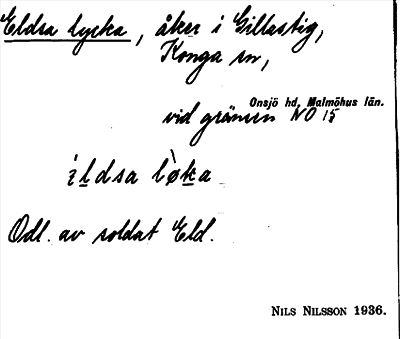 Eldsa lycka, åker i Gillastig,
Konga sn,
Onsjö hd, Malmöhus län.
vid gränsen NO 15
ìldsa lø̀ka
Odl. av soldat Eld.
NILS NILSSON 1936.